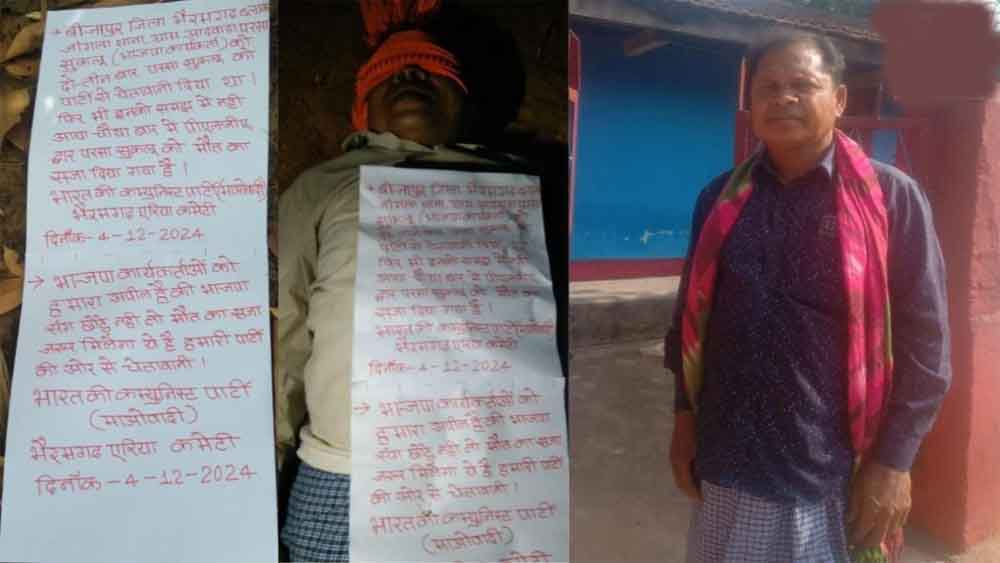 * बीजापुर जिला भैरमगढ़ ब्लाक
जांगला थाना ग्राम आदवाड़ा परसा
सुकलू (भाजपा कार्यकर्ता) को
दो-तीन बार परसा सुकलू को
पार्टी से चेतावनी दिया था।
फिर भी इनको समझ में नही
आया-चौथा बार में पीएलजीए
द्वार परसा सुकलू को मौत का
सजा दिया गया है।
भारत की कम्युनिस्ट पार्टी (माओवादी)
भैरमगढ़ एरिया कमेटी
दिनाँक-4-12-2024
→ भाजपा कार्यकर्ताओं को
हमारा अपील है की भाजपा
संग छोड़ु नही तो मौत का सजा
जरूर मिलेगा ये है हमारी पार्टी
की ओर से चेतावनी।
भारत की कम्युनिस्ट पार्टी
(माओवादी)
भैरमगढ़ एरिया कमेटी
दिनाँक-4-12-2024
* बीजापुर जिला भैरमगढ़
जांगला थाना ग्राम
सुकलू (भाजपा कार्यकर्ता) को
दो-तीन बार परसा सुकलू को
पार्टी से चेतावनी दिया था।
फिर भी इनको समझ में नही
आया-चौथा बार में पीएलजीए
द्वार परसा सुकलू को मौत का
सजा दिया गया है।
भारत की कम्युनिस्ट पार्टी (माओवादी)
भैरमगढ़ एरिया कमेटी
दिनाँक-4-12-2024
→ भाजपा कार्यकर्ताओं को
हमारा अपील है की भाजपा
संग छोड़ु नही तो मौत का सजा
जरूर मिलेगा ये है हमारी पार्टी
की ओर से चेतावनी।
भारत की कम्युनिस्ट पार्टी
(माओवादी)
कमेटी